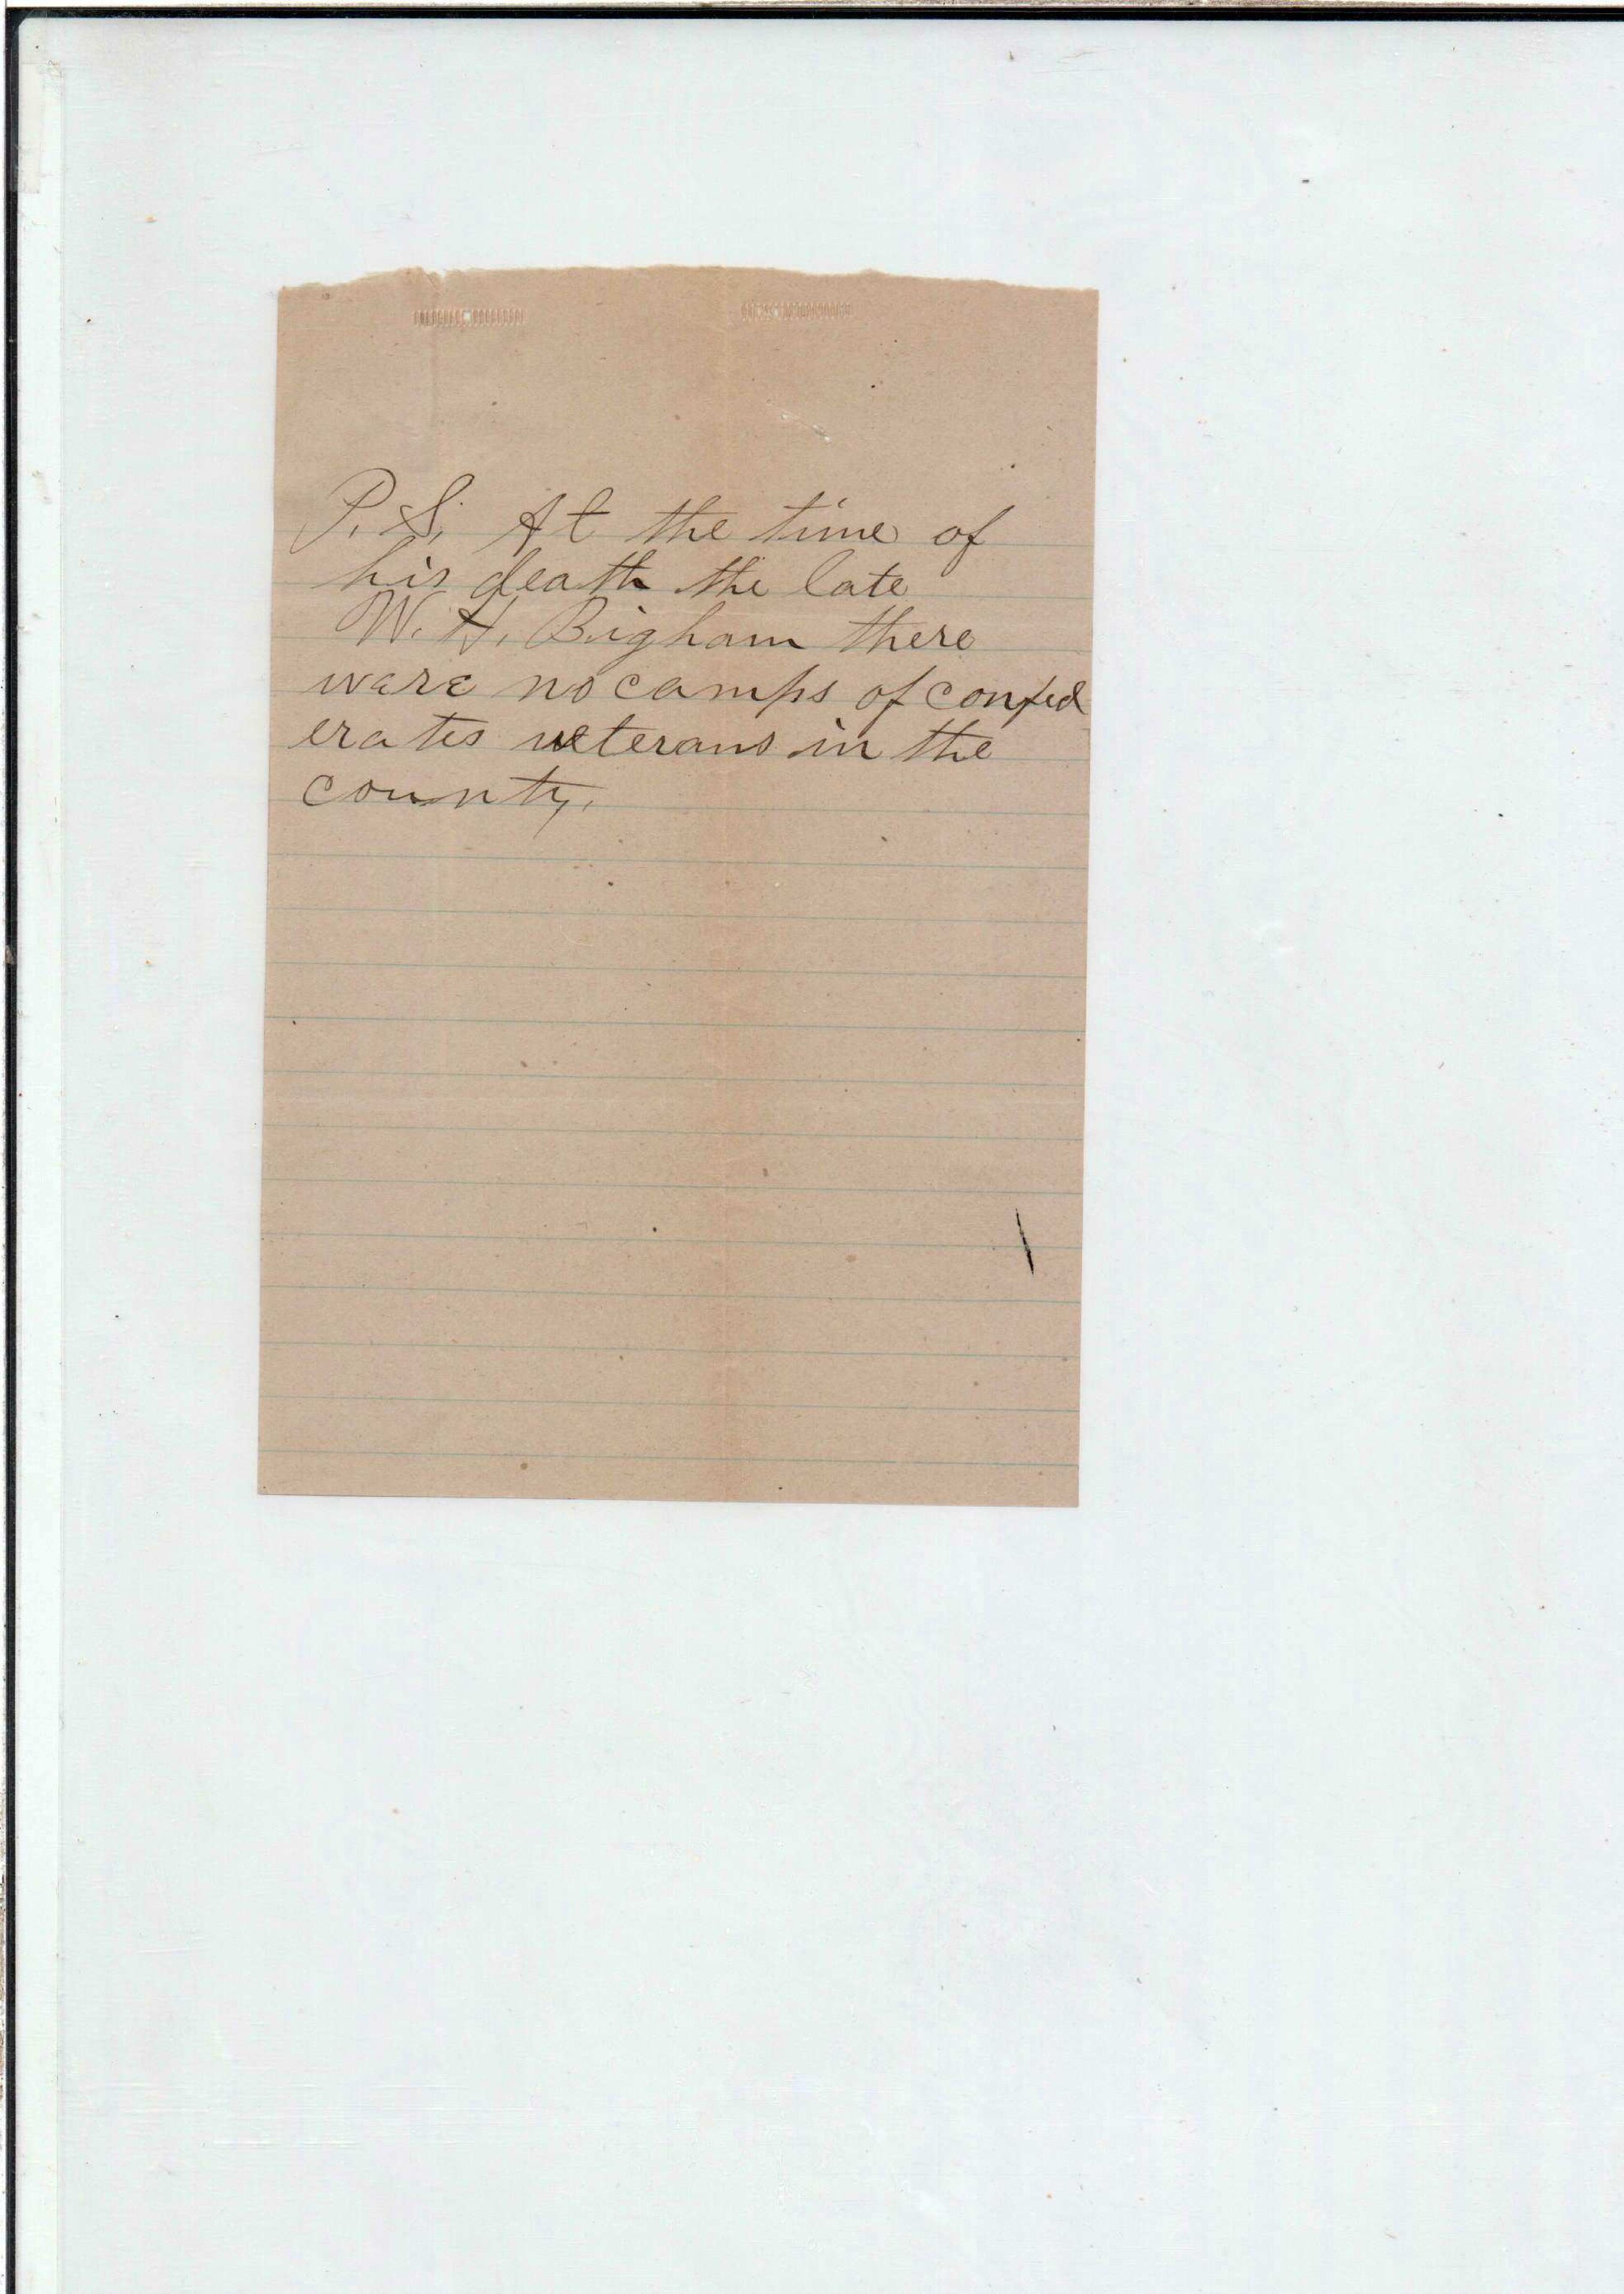 P. S. At the time of
his death the late
W. H. Bigham there
were no camps of confed
erates veterans in the
county.